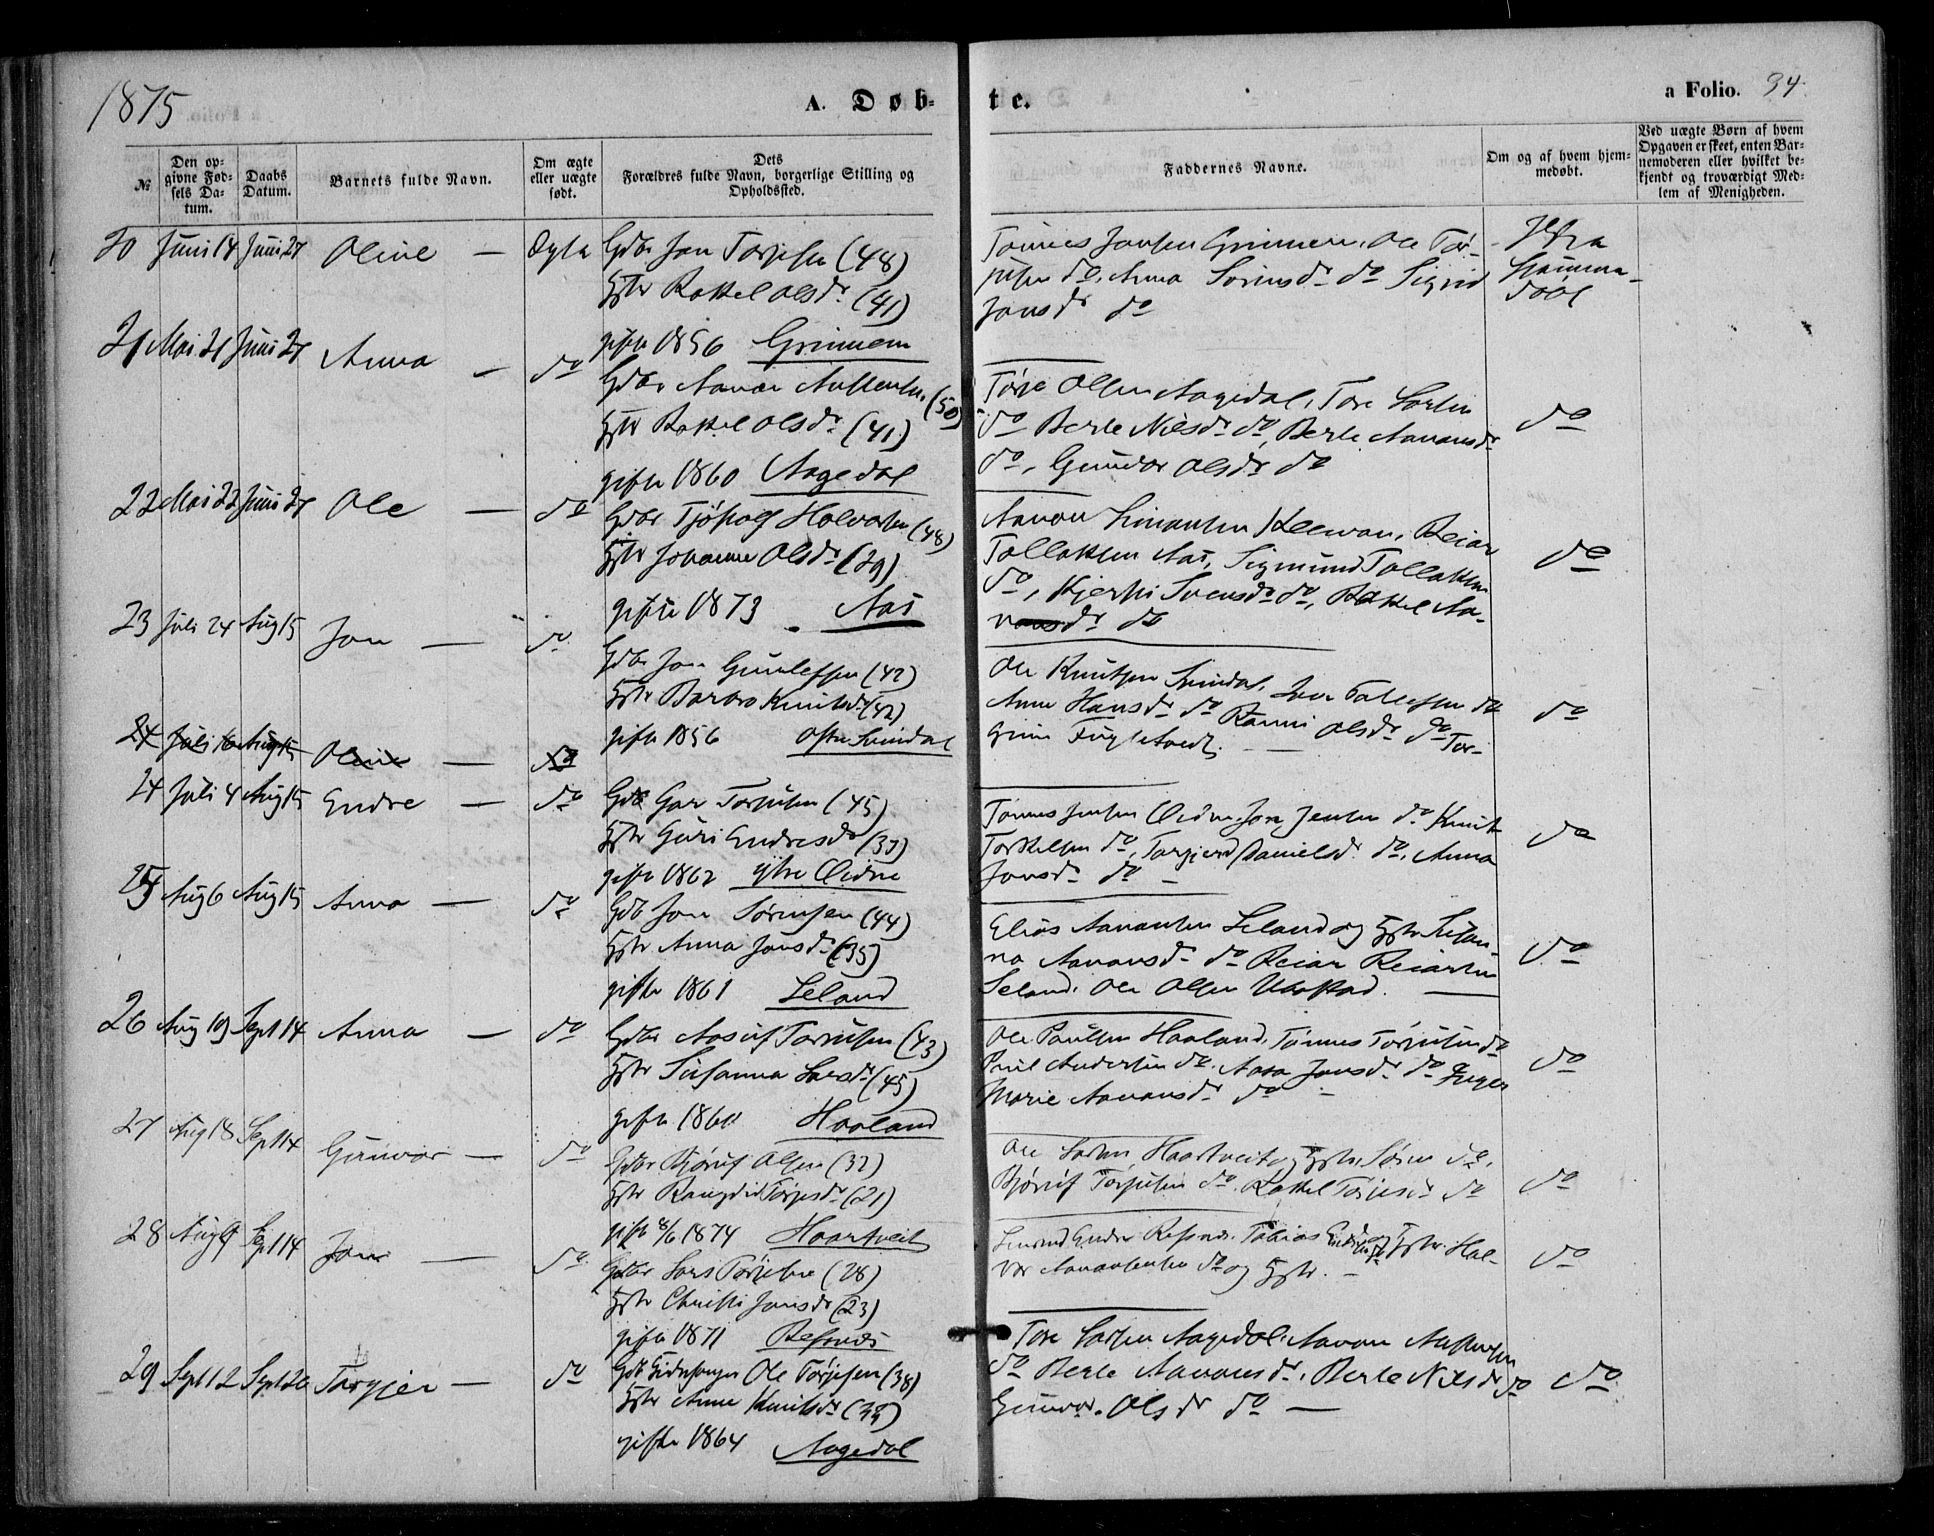 1875
A. Døb-
te.
a Folio. 34.
№
Den op-
givne Fød-
sels Da-
tum.
Daabs
Datum.
Barnets fulde Navn.
Om ægte
eller uægte
født.
Dets
Forældres fulde Navn, borgerlige Stilling og
Opholdssted.
Faddernes Navne.
Om og af hvem hjem-
medøbt.
Ved uægte Børn af hvem
Opgaven er skeet, enten Bar-
nemoderen eller hvilket be-
kjendt og troværdigt Med-
lem af Menigheden.
20 Juni 14 Juni 27 Oline — Ægte Gdbr Jon Torjesen (48)
Hstr Rakkel Olsdr (41)
gifte 1856 Grimnem
Tønnes Jonsen Ole Tor-
do, Anna do Sigrid
Jonsdr do
hjemme-
døbt
21 Mai 21 Juni 27 Anna — do Gdbr Aanon Austensen (50)
Hstr Rakkel Olsdr (41)
gifte 1860 Aagedal
Olsen Aagedal, Tore Larsen
do Berte Nilsdr do, Berte Aanonsdr
do, Gunvor Olsdr do
do
22 Mai 22 Juni 27 Ole — do Gdbr Tjøstolf Halvorsen (48)
Hstr Johanne Olsdr (29)
gifte 1873 Aas
Aanon Reiar
Tollaksen Aas, Sigmund Tollaksen
do, Kjersti Svensdr do, Rakel Aa-
nonsdr do
do
23 Juli 24 Aug 15 Jon — do Gdbr Jon Gunlefsen (42)
Hstr Barbro Knutsdr (42)
gifte 1856 Svindal
Ole Knutsen Svindal, do
Anne Hansdr do Olsdr do Tor-
do
24 Juli 16 Aug 15 Oline — do
24 Juli 4 Aug 15 Endre — do Gdbr Torjusen (45)
Hstr Guri Endresdr (37)
gifte 1862 Ytre Øidne
Tønnes Jensen Øidne, Jon Jensen do Knut
Torkelsen do, Torgjerd Danielsdr do, Anna
Jonsdr do —
do
25 Aug 6 Aug 15 Anna — do Gdb Jon Sørensen (44)
Hstr Anna Jonsdr (35)
gifte 1861 Leland
Elias Aanonsen Leland og Hstr Susan-
na Aanonsdr do Reiar Reiarsen
Leland. Ole Olsen
do
26 Aug 19 Sept 14 Anna — do Gdbr Torjusen (43)
Hstr Susanna Larsdr (45)
gifte 1860 Haaland
Ole Paulsen Haaland, Tønnes Torjusen do
Andersen do, Aasa Jonsdr do Inger
Marie Aanonsdr do —
do
27 Aug 18 Sept 14 Gunvor — do Gdbr Bjøruf Olsen (32)
Hstr Rangdid Torjesdr (21)
gifte 8/6 1874 Haartveit
Ole Larsen Haartveit og Hstr Søren do,
Bjøruf Torjusen do Rakkel Torjesdr do
do
28 Aug 9 Sept 14 Jon — do Gdbr Lars Torjesen (28)
Hstr Christi Jonsdr (23)
gifte 1871 Refsnes
Endre Refsnes. Tobias og Hstr. Hal-
vor Aanonsen do og Hstr. —
do
29 Sept 12 Sept 26 Torgjer — do Ole Torjesen (38)
Hstr Anne Knutsdr (33)
gifte 1864 Aagedal
Tore Larsen Aagedal, Aanon Austensen
do Berte Aanonsdr, Berte Nilsdr do
Gunvor Olsdr do —
do